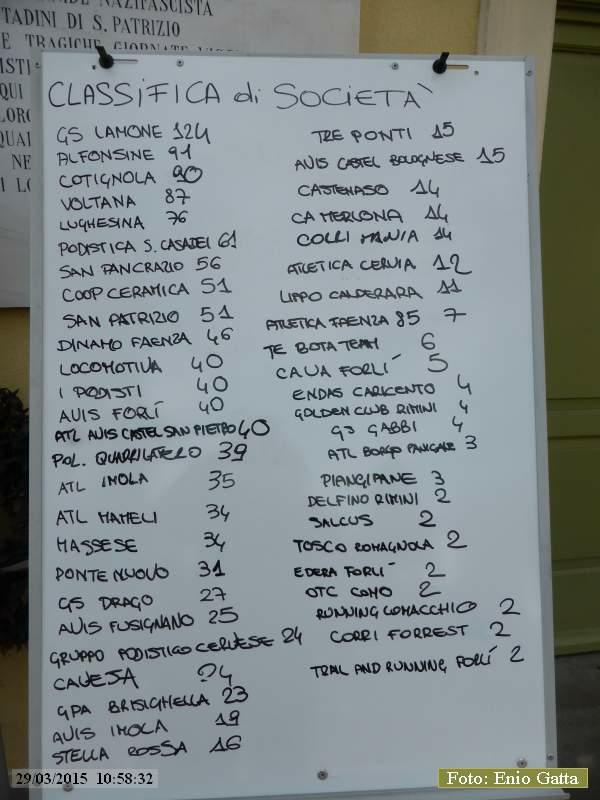 NAZIFASCISTA
TADINI DI S. PATRIZIO
E TRAGICHE GIORNATE
CLASSIFICA di SOCIETÀ
GS LAMONE 124
ALFONSINE 91
COTIGNOLA 90
VOLTANA 87
LUGHESINA 76
PODISTICA S. CASADEI 61
SAN PANCRAZIO 56
COOP CERAMICA 51
SAN PATRIZIO 51
DINAMO FAENZA 46
LOCOMOTIVA 40
I PODISTI 40
AVIS FORLÍ 40
ATL AVIS CASTEL SAN PIETRO 40
POL. QUADRILATERO 39
ATL IMOLA 35
ATL MAMELI 34
MASSESE 34
PONTE NUOVO 31
GS DRAGO 27
AVIS FUSIGNANO 25
GRUPPO PODISTICO CERVESE 24
CAVEJA 24
GPA BRISIGHELLA 23
AVIS IMOLA 19
STELLA ROSSA 16
TRE PONTI 15
AVIS CASTEL BOLOGNESE 15
CASTENASO 14
CA MERLONA 14
COLRI MANIA 14
ATLETICA CERVIA 12
LIPPO CALDERARA 11
ATLETICA FAENZA 85 7
TE BOTA TEAM 6
CAVA FORLÍ 5
ENDAS CARICENTO 4
GOLDEN CLUB RIMINI 4
GS GABBI 4
ATL BORGO PANIGALE 3
PIANGIPANE 3
DELFINO RIMINI 2
SALCUS 2
TOSCO ROMAGNOLA 2
EDERA FORLÍ 2
OTC COMO 2
RUNNING COMACCHIO 2
CORRI FORREST 2
TRAIL AND RUNNING FORLÍ 2
29/03/2015 10:58:32
Foto: Enio Gatta